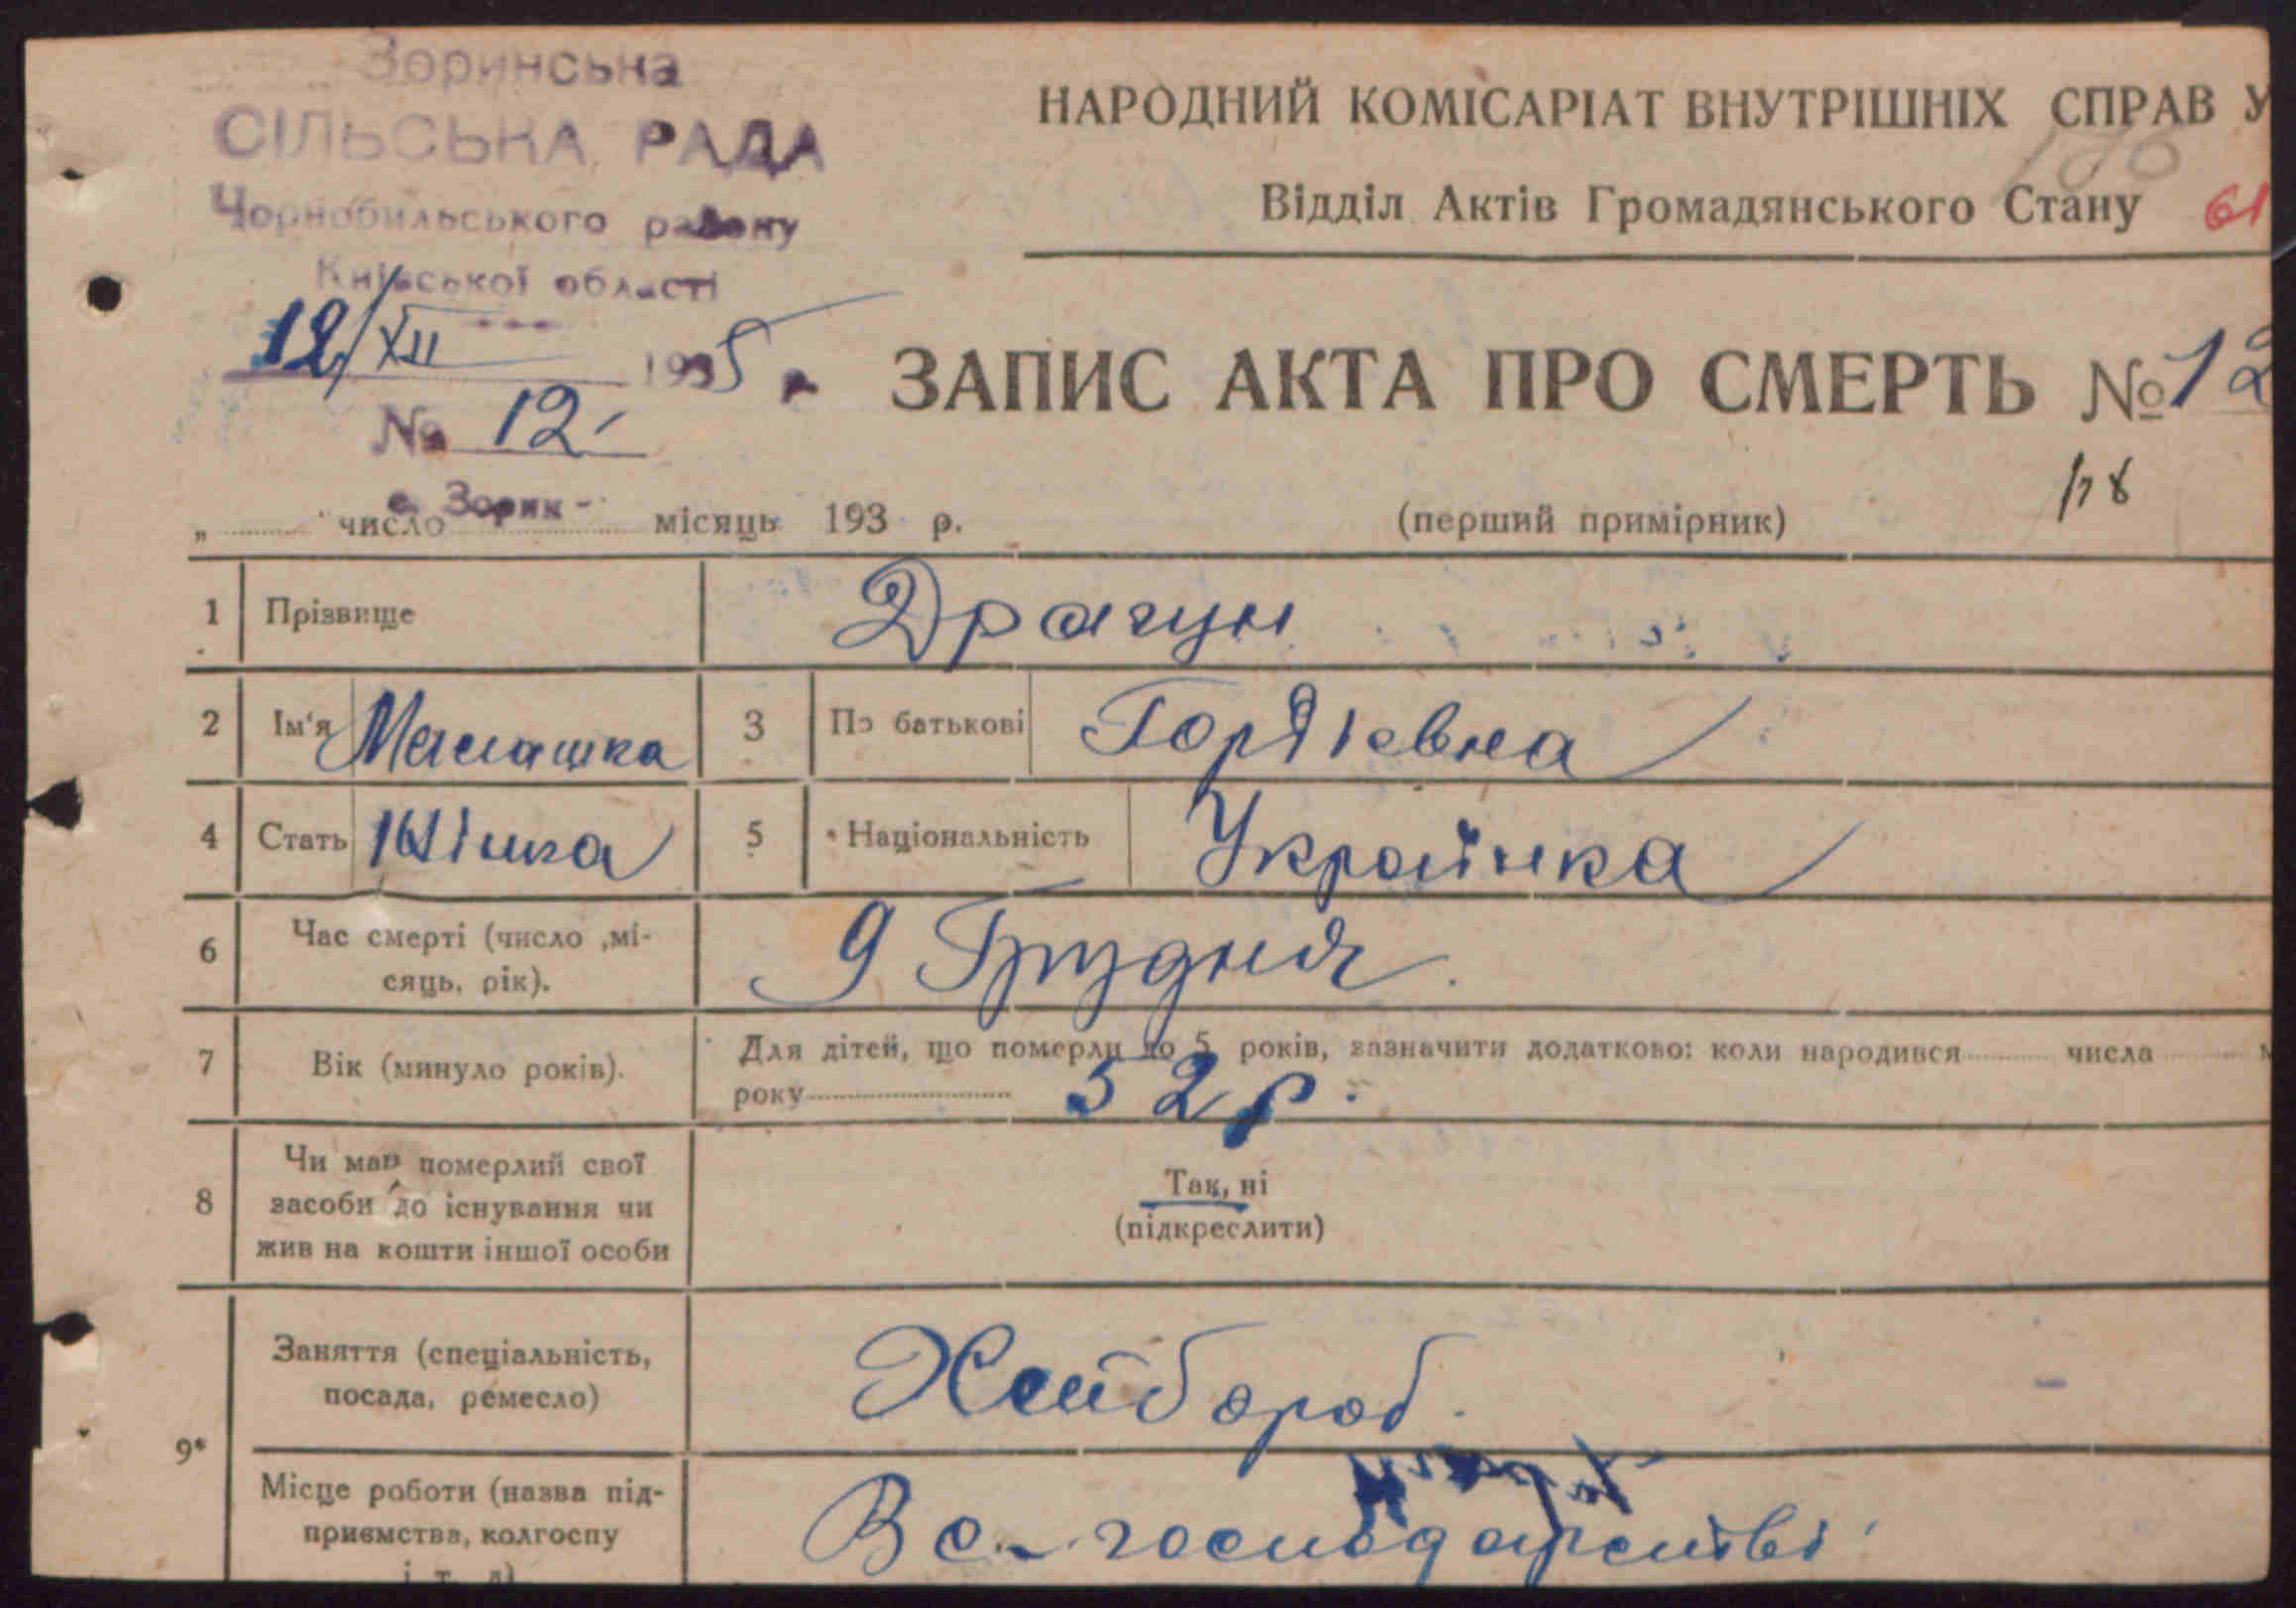 Зоринська
СІЛЬСЬКА РАДА
Чорнобильського району
Київської області
12/XII 1935 р.
№ 12
с. Зорин
НАРОДНИЙ КОМІСАРІАТ ВНУТРІШНІХ СПРАВ У
Відділ Актів Громадянського Стану 61
ЗАПИС АКТА ПРО СМЕРТЬ № 12
178
„ число місяць 193 р. (перший примірник)
1 Прізвище Драгун
2 Ім'я Малашка 3 По батькові Гордіевна
4 Стать Жінка 5 Національність Українка
6 Час смерті (число, мі-
сяць, рік). 9 Грудня
7 Вік (минуло років). Для дітей, що померли до 5 років, зазначити додатково: коли народився числа м
року 52 р.
8 Чи мав померлий свої
засоби до існування чи
жив на кошти іншої особи
Так, ні
(підкреслити)
9*
Заняття (спеціальність,
посада, ремесло) Хлібороб
Місце роботи (назва під-
приємства, колгоспу
і т. д)
В с. господарстві